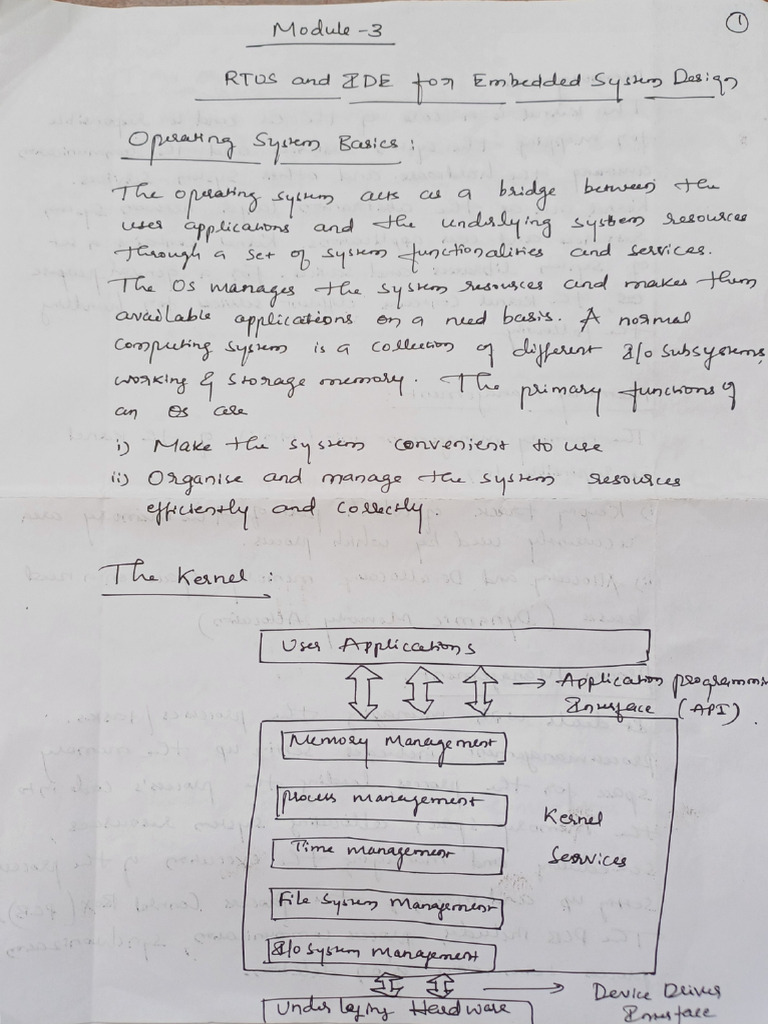 1
Module-3
RTOS and IDE for Embedded System Design
Operating System Basics:
The operating system acts as a bridge between the
user applications and the underlying system resources
through a set of system functionalities and services.
The OS manages the system resources and makes them
available applications on a need basis. A normal
computing system is a collection of different I/o subsystems,
working & storage memory. The primary functions of
an OS are
i) Make the system convenient to use
ii) Organise and manage the system resources
efficiently and correctly.
The Kernel:
User Applications
→ Application programmin
Interface (API)
Memory Management
process management
Kernel
Time management
Services
File System Management
I/o System Management
→ Device Driver
Underlaying Hardware
Interface